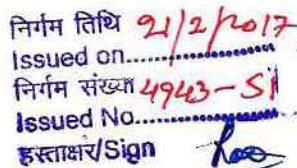 निर्गम तिथि 21/2/2017
Issued on..................
निर्गम संख्या 4943-Si
Issued No..................
हस्ताक्षर/Sign